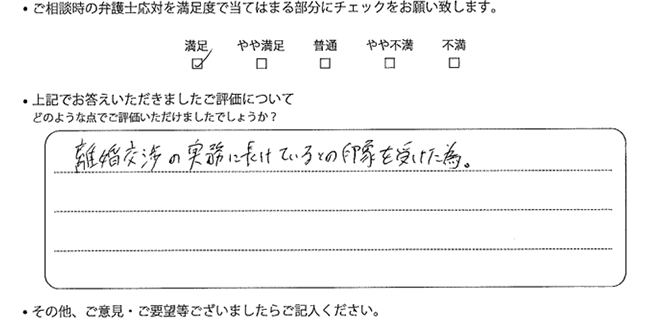 ・ご相談時の弁護士応対を満足度で当てはまる部分にチェックをお願い致します。
満足 やや満足 普通 やや不満 不満
・上記でお答えいただきましたご評価について
どのような点でご評価いただけましたでしょうか？
離婚交渉の実務に長けているとの印象を受けた為。
・その他、ご意見・ご要望等ございましたらご記入ください。